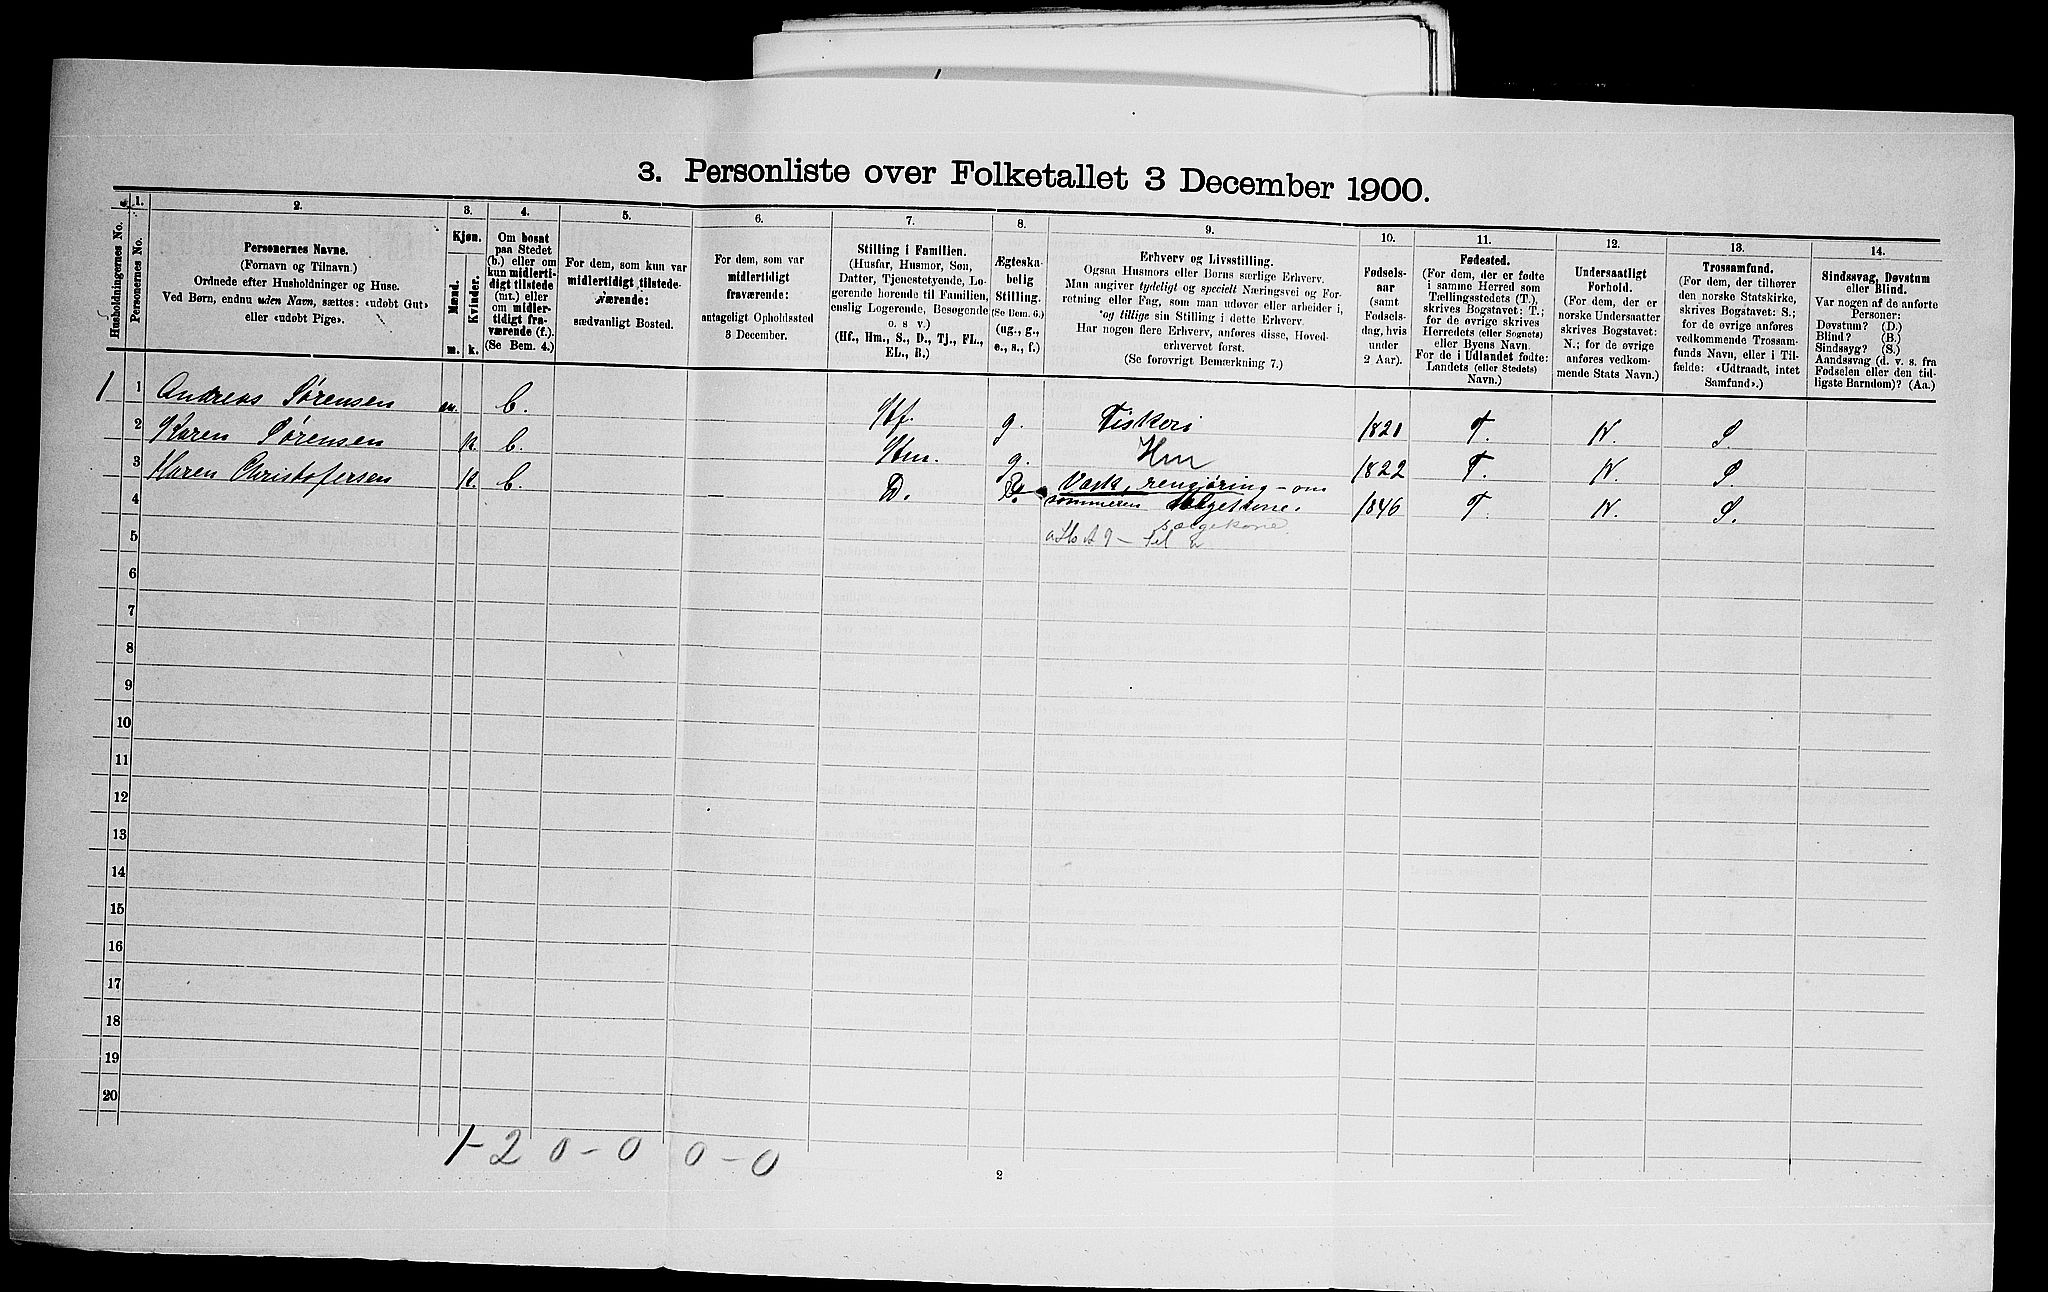 3. Personliste over Folketallet 3 December 1900.
Husholdningernes No.
1.
Personernes No.
2.
Personernes Navne.
(Fornavn og Tilnavn.)
Ordnede efter Husholdninger og Huse.
Ved Børn, endnu uden Navn, sættes: «udøbt Gut»
eller «udøbt Pige».
3.
Kjøn.
Mænd.
Kvinder.
m.
k.
4.
Om bosat
paa Stedet
(b.) eller om
kun midlerti-
digt tilstede
(mt.) eller
om midler-
tidigt fra-
værende (f.).
(Se Bem. 4.)
5.
For dem, som kun var
midlertidigt tilstede-
værende:
sædvanligt Bosted.
6.
For dem, som var
midlertidigt
fraværende:
antageligt Opholdssted
3 December.
7.
Stilling i Familien.
(Husfar, Husmor, Søn,
Datter, Tjenestetyende, Lo-
gerende hørende til Familien,
enslig Logerende, Besøgende
o. s v.)
(Hf., Hm., S., D., Tj., FL.,
EL., B.)
8.
Ægteska-
belig
Stilling.
(Se Bem. 6.)
(ug., g.,
e., s., f.)
9.
Erhverv og Livsstilling.
Ogsaa Husmors eller Børns særlige Erhverv.
Man angiver tydeligt og specielt Næringsvei og For-
retning eller Fag, som man udøver eller arbeider i,
og tillige sin Stilling i dette Erhverv.
Har nogen flere Erhverv, anføres disse, Hoved-
erhvervet forst.
(Se forøvrigt Bemærkning 7.)
10.
Fødsels-
aar
(samt
Fødsels-
dag, hvis
under
2 Aar).
11.
Fødested.
(For dem, der er fødte
i samme Herred som
Tællingsstedets (T.),
skrives Bogstavet: T.;
for de øvrige skrives
Herredets (eller Sognets)
eller Byens Navn.
For de i Udlandet fødte:
Landets (eller Stedets)
Navn.)
12.
Undersaatligt
Forhold.
(For dem, der er
norske Undersaatter
skrives Bogstavet:
N.; for de øvrige
anføres vedkom-
mende Stats Navn.)
13.
Trossamfund.
(For dem, der tilhører
den norske Statskirke,
skrives Bogstavet: S.;
for de øvrige anføres
vedkommende Trossam-
funds Navn, eller i Til-
fælde: «Udtraadt, intet
Samfund».)
14.
Sindssvag, Døvstum
eller Blind.
Var nogen af de anførte
Personer:
Døvstum? (D.)
Blind? (B.)
Sindssyg? (S.)
Aandssvag (d. v. s. fra
Fødselen eller den tid-
ligste Barndom)? (Aa.)
1 1 Andreas Sørensen m. b. Hf. g. Fiskeri 1821 T. N. S.
2 Karen Sørensen k. b. Hm. g. Hm 1822 T. N. S.
3 Karen Christofersen k. b. D. Vask, rengjøring - om 1846 T. N. S.
4 sommeren
5 sælgekone
6
7
8
9
10
11
12
13
14
15
16
17
18
19
20
1-2 0-0 0-0
2